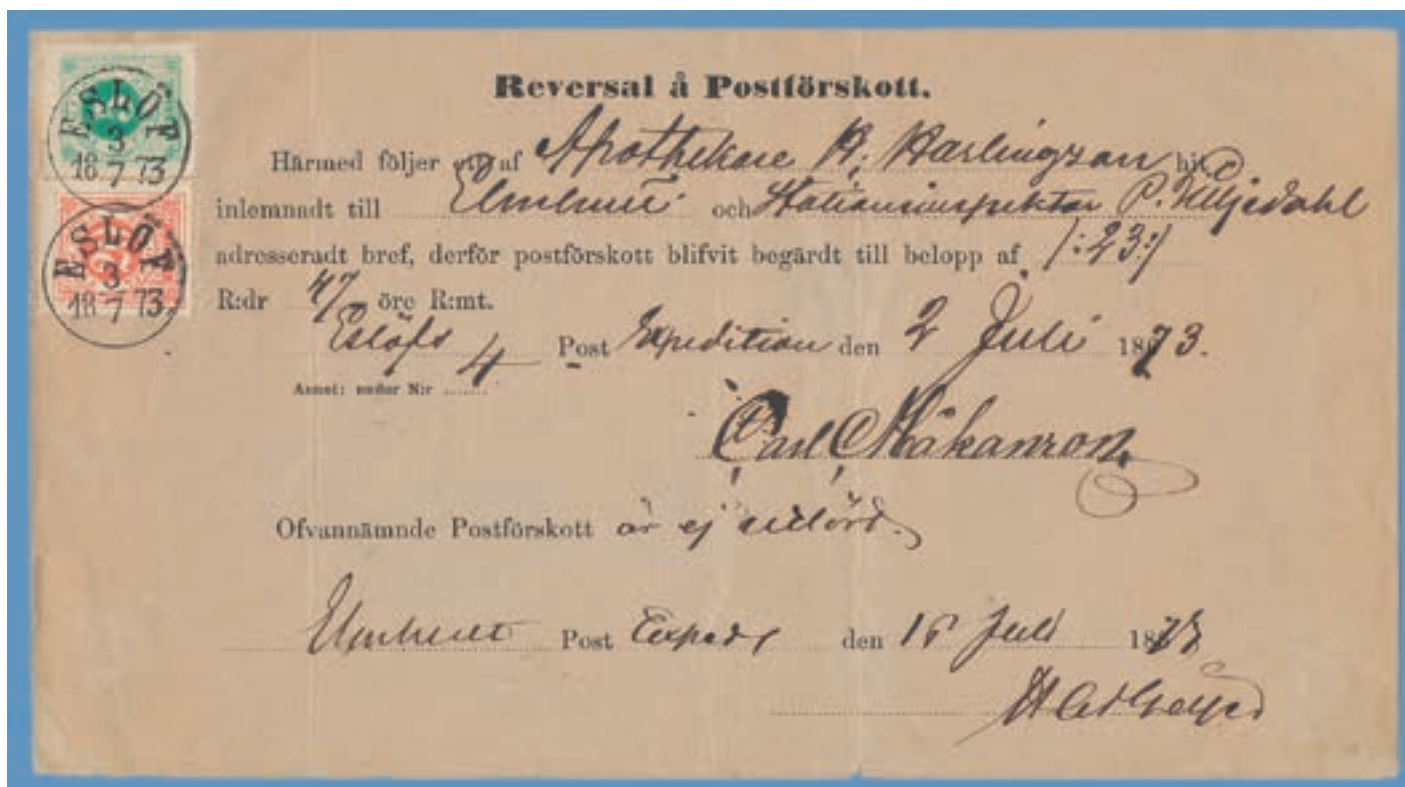 ESLÖF
3
18 7 73
ESLÖF
3
18 7 73
Reversal å Postförskott.
Härmed följer ett af Apothekare
inlemnadt till Elmhult och Stationsinspektor P.
adresseradt bref, derför postförskott blifvit begärdt till belopp af /:23:/
R:dr 47 öre R:mt.
Eslöfs Post Expedition den 2 Juli 1873.
Annot: under N:r 4
Carl Håkanson
Ofvannämnde Postförskott är ej utlöst.
Elmhult Post Exped den 15 Juli 1873